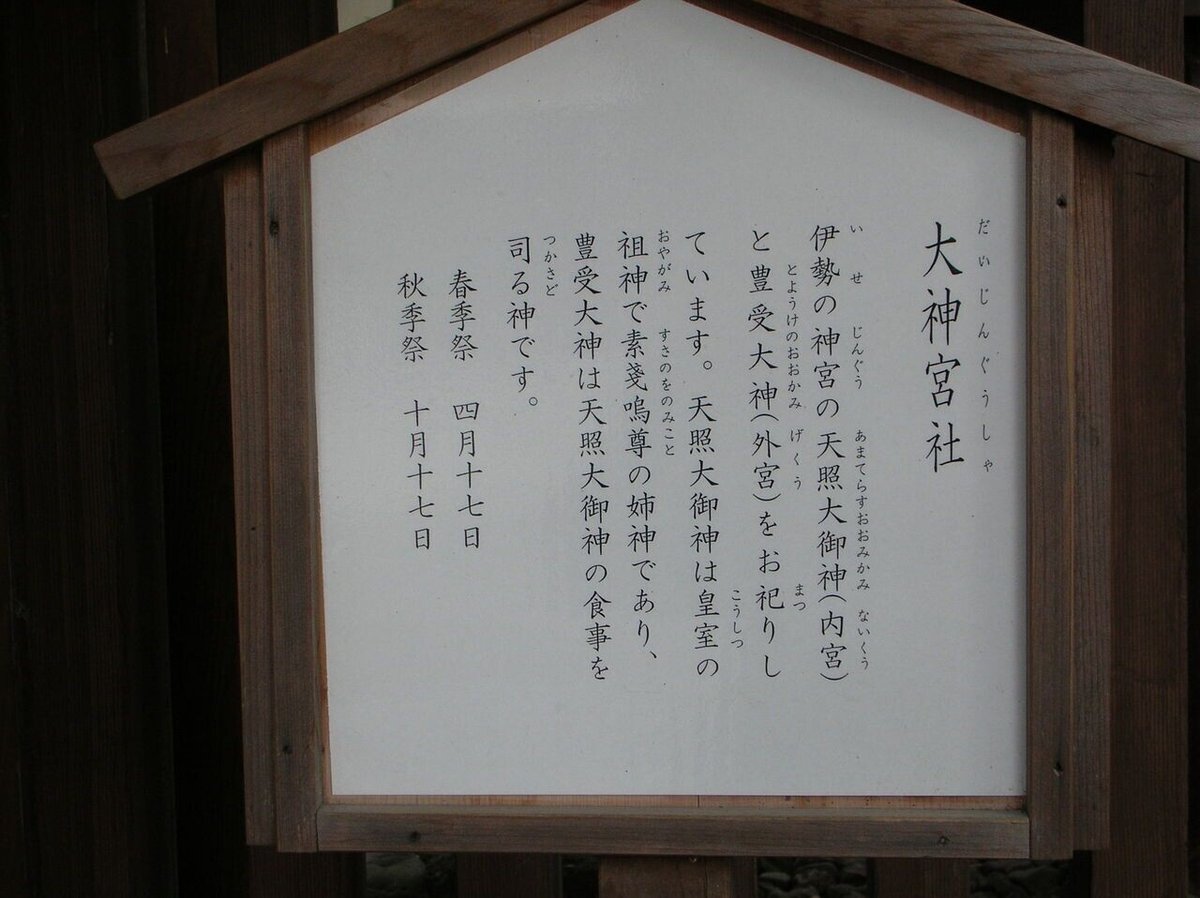 だいじんぐうしゃ
大神宮社
いせ じんぐう あまてらすおおみかみ ないくう
伊勢の神宮の天照大御神(内宮)
とようけのおおかみ げくう まつ
と豊受大神(外宮)をお祀りし
こうしつ
ています。天照大御神は皇室の
おやがみ すさのをのみこと
祖神で素戔嗚尊の姉神であり、
豊受大神は天照大御神の食事を
つかさど
司る神です。
春季祭 四月十七日
秋季祭 十月十七日